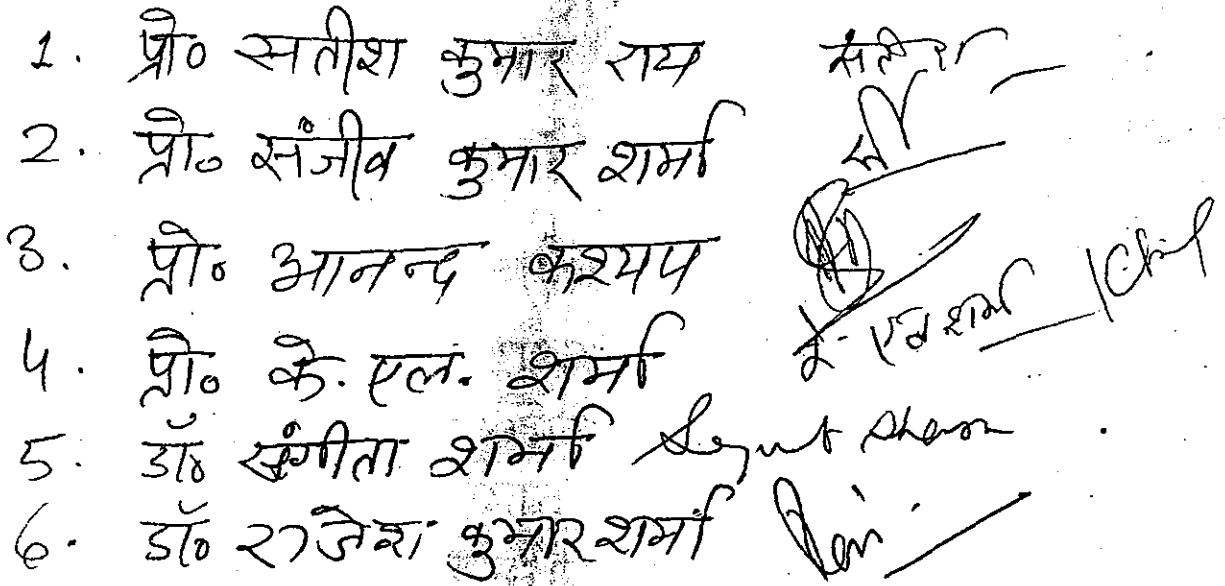 1. प्रो० सतीश कुमार राय सतीश
2. प्रो० संजीव कुमार शर्मा
3. प्रो० आनन्द कश्यप
4. प्रो० के. एल. शर्मा के. एल शर्मा
5. डॉ० संगीता शर्मा
6. डॉ० राजेश कुमार शर्मा